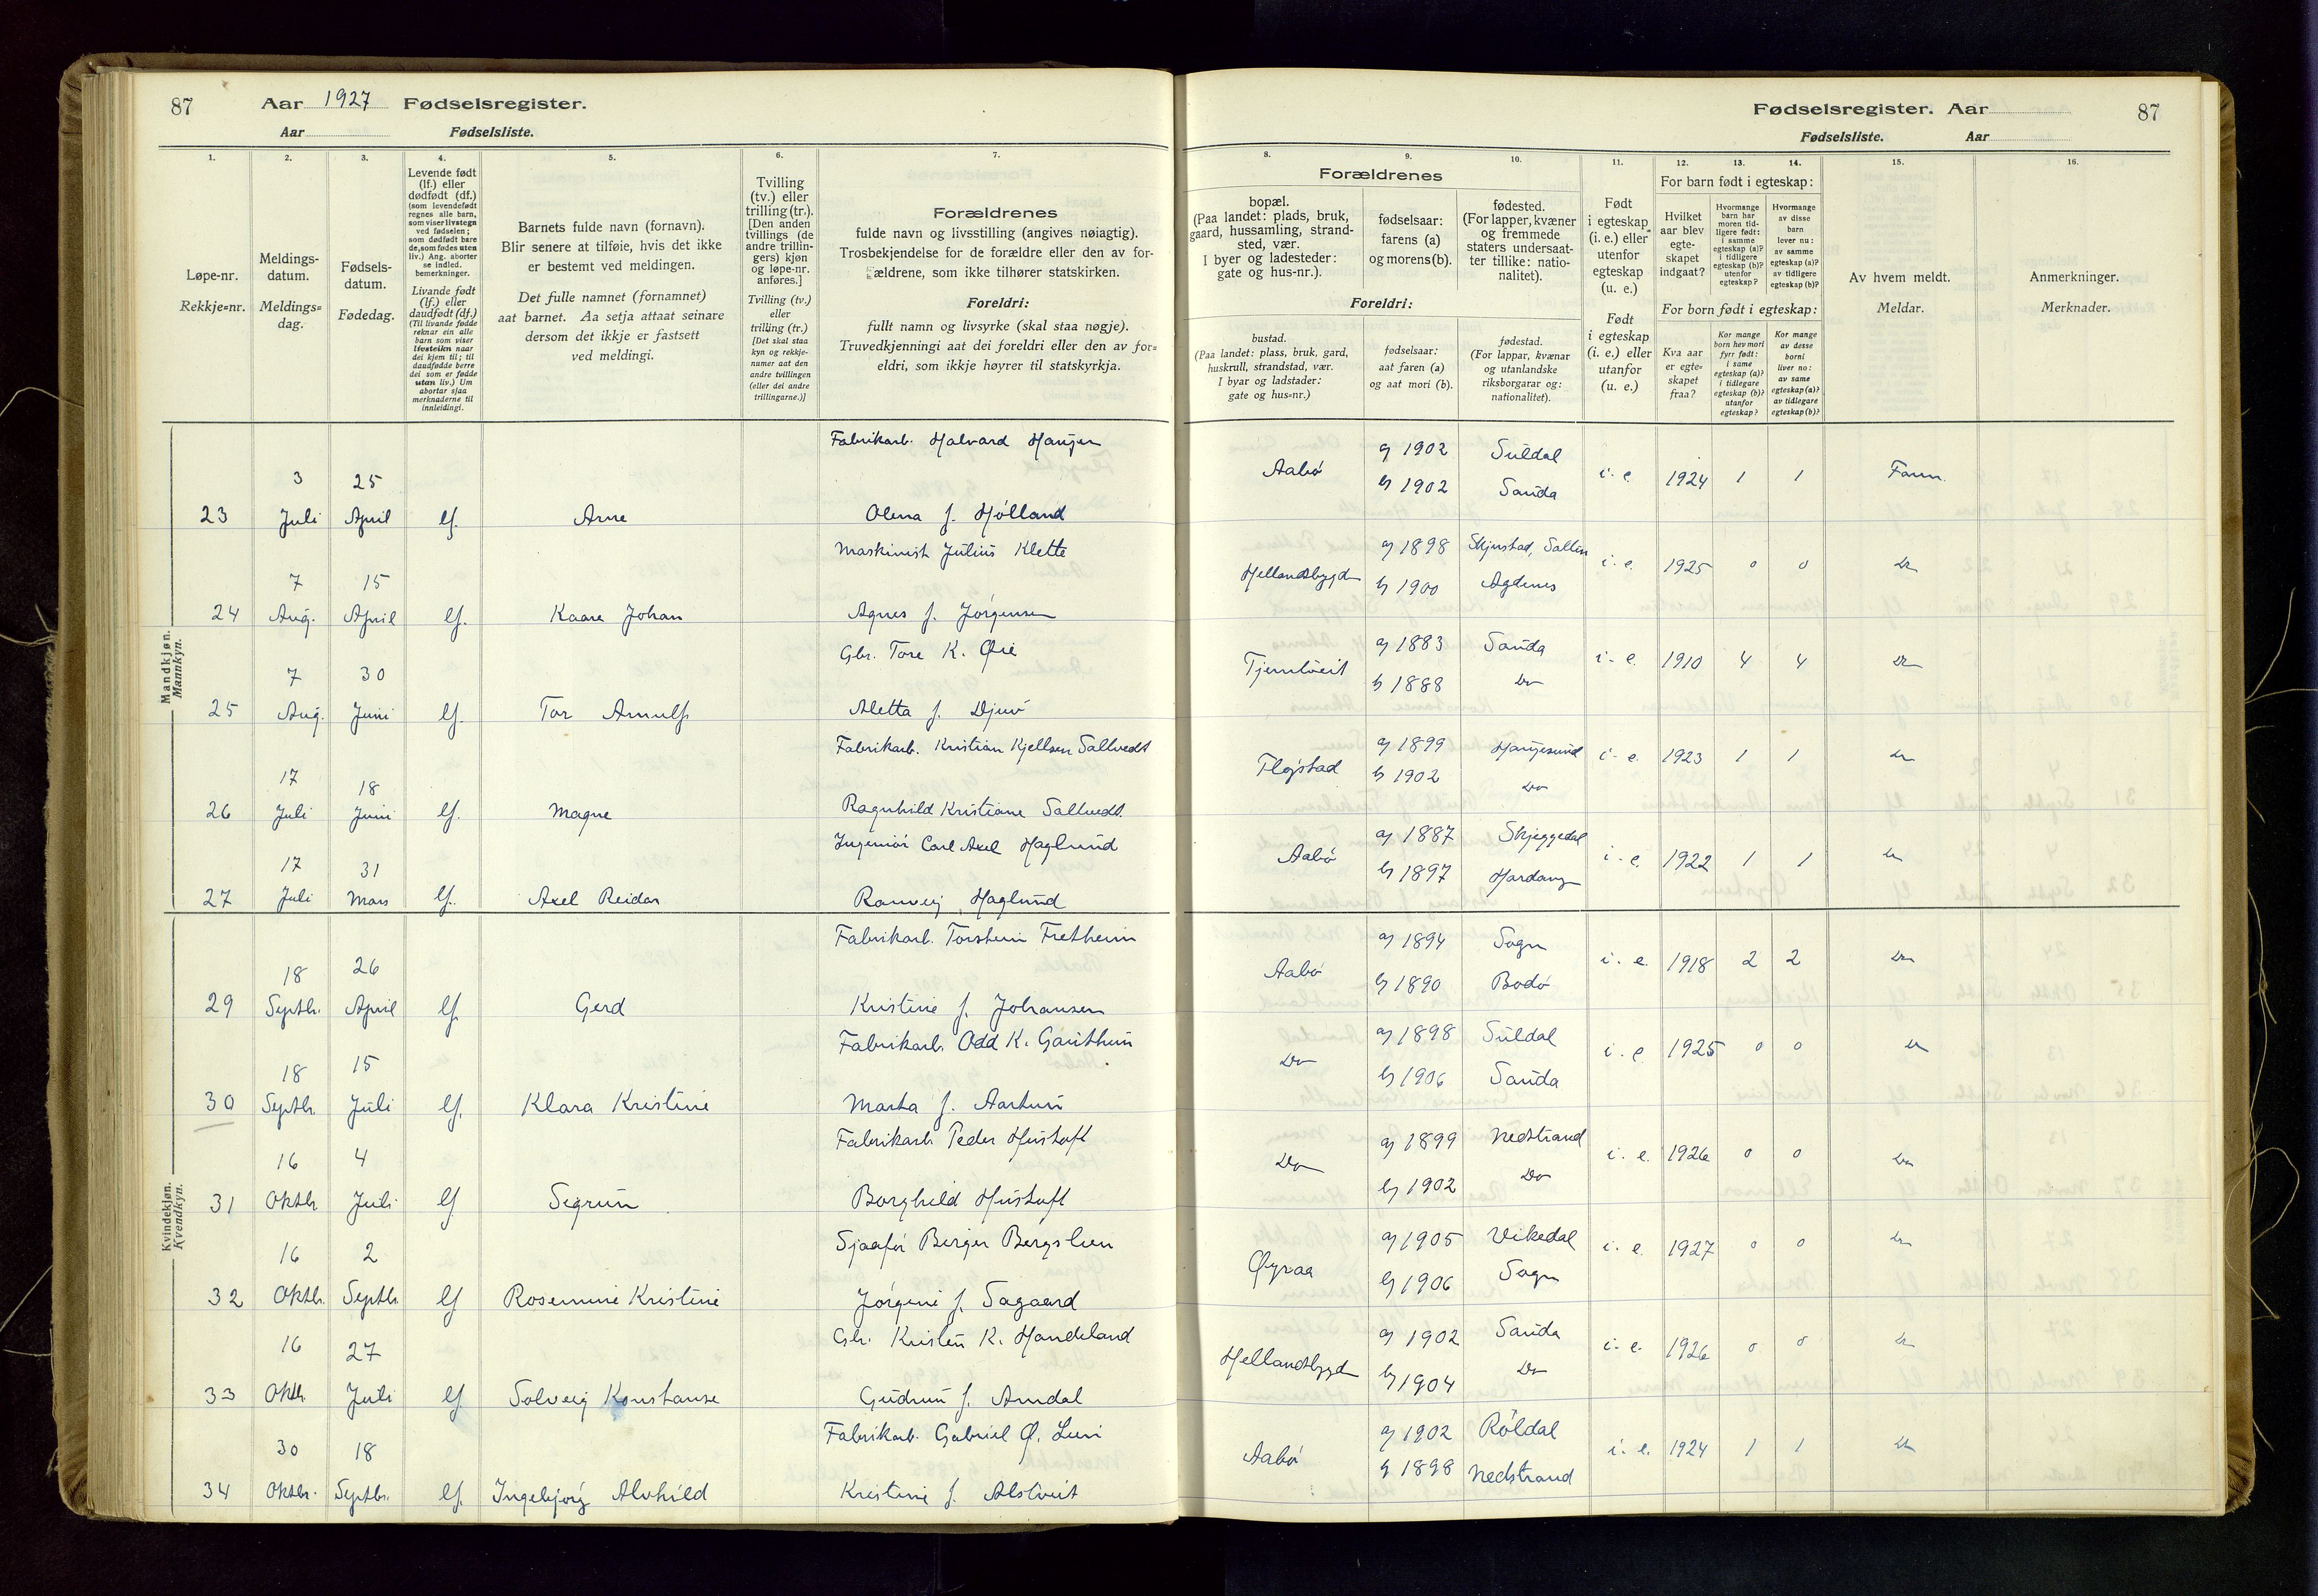 87 Aar 1927 Fødselsregister.
Aar Fødselsliste.
Fødselsregister. Aar 87
Fødselsliste. Aar
1. 2. 3. 4. 5. 6. 7. 8. 9. 10. 11. 12. 13. 14. 15. 16.
Løpe-nr.
Rekkje=nr.
Meldings-
datum.
Meldings=
dag.
Fødsels-
datum.
Fødedag.
Levende født
(lf.) eller
dødfødt (df.)
(som levendefødt
regnes alle barn,
som viser livstegn
ved fødselen;
som dødfødt bare
de, som fødes uten
liv.) Ang. aborter
se indled.
bemerkninger.
Livande født
(lf.) eller
daudfødt (df.)
(Til livande fødde
reknar ein alle
barn som viser
livsteikn naar
dei kjem til; til
daudfødde berre
dei som er fødde
utan liv.) Um
abortar sjaa
merknaderne til
innleidingi.
Barnets fulde navn (fornavn).
Blir senere at tilføie, hvis det ikke
er bestemt ved meldingen.
Det fulle namnet (fornamnet)
aat barnet. Aa setja attaat seinare
dersom det ikkje er fastsett
ved meldingi.
Tvilling
(tv.) eller
trilling (tr.).
[Den anden
tvillings (de
andre trillin-
gers) kjøn
og løpe-nr.
anføres.]
Tvilling (tv.)
eller
trilling (tr.)
[Det skal staa
kyn og rekkje-
numer aat den
andre tvillingen
(eller dei andre
trillingarne.)]
Forældrenes
fulde navn og livsstilling (angives nøiagtig).
Trosbekjendelse for de forældre eller den av for-
ældrene, som ikke tilhører statskirken.
Foreldri:
fullt namn og livsyrke (skal staa nøgje).
Truvedkjenningi aat dei foreldri eller den av for=
eldri, som ikkje høyrer til statskyrkja.
Forældrenes
bopæl.
(Paa landet: plads, bruk,
gaard, hussamling, strand-
sted, vær.
I byer og ladesteder:
gate og hus-nr.).
fødselsaar:
farens (a)
og morens (b).
fødested.
(For lapper, kvæner
og fremmede
staters undersaat-
ter tillike: natio-
nalitet).
Foreldri:
bustad.
(Paa landet: plass, bruk, gard,
huskrull, strandstad, vær.
I byar og ladstader:
gate og hus=nr.)
fødselsaar:
aat faren (a)
og aat mori (b).
fødestad.
(For lappar, kvænar
og utanlandske
riksborgarar og:
nationalitet).
Født
i egteskap
(i. e.) eller
utenfor
egteskap
(u. e.)
Født
i egteskap
(i. e.) eller
utanfor
(u. e.)
For barn født i egteskap:
Hvilket
aar blev
egte-
skapet
indgaat?
Hvormange
barn har
moren tid-
ligere født:
i samme
egteskap (a)?
i tidligere
egteskap (b)?
utenfor
egteskap?
Hvormange
av disse
barn
lever nu:
av samme
egteskap (a)?
av tidligere
egteskap (b)?
For born født i egteskap:
Kva aar
er egte=
skapet
fraa?
Kor mange
born hev mori
fyrr født:
i same
egteskap (a)?
i tidlegare
egteskap (b)?
utanfor
egteskap?
Kor mange
av desse
borni
liver no:
av same
egteskap (a)?
av tidlegare
egteskap (b)?
Av hvem meldt.
Meldar.
Anmerkninger.
Merknader.
Mandkjøn.
Mannkyn.
23 3 Juli 25 April lf. Arne Fabrikarb. Halvard Haugen Aabø a) 1902 Suldal i. e. 1924 1 1 Faren
Olena f. Hølland b) 1902 Sauda
24 7 Aug. 15 April lf. Kaare Johan Maskinist Julius Klette Hellandsbygd a) 1898 i. e. 1925 0 0 Do
Agnes f. Jørgensen b) 1900 Agdenes
25 7 Aug. 30 Juni lf. Tor Arnulf Gbr. Tore K. Øie Tjernlveit a) 1883 Sauda i. e. 1910 4 4 Do
Aletta f. Djuv b) 1888 Do
26 17 Juli 18 Juni lf. Magne Fabrikarb. Kristian Kjellsen Saltvedt Fløgstad a) 1899 Haugesund i. e. 1923 1 1 Do
Ragnhild Kristiane Saltvedt b) 1902 Do
27 17 Juli 31 Mars lf. Axel Reidar Ingeniør Carl Axel Haglund Aabø a) 1887 Skjeggedal i. e. 1922 1 1 Do
Ranveig Haglund b) 1897 Hardang
Kvindekjøn.
Kvendkyn.
29 18 Septbr. 26 April lf. Gerd Fabrikarb. Torstein Fretheim Aabø a) 1894 Sogn i. e. 1918 2 2 Do
Kristine f. Johansen b) 1890 Bodø
30 18 Septbr. 15 Juli lf. Klara Kristine Fabrikarb. Odd K. Gauthun Do a) 1898 Suldal i. e. 1925 0 0 Do
Marta f. Aartun b) 1906 Sauda
31 16 Oktbr 4 Juli lf Sigrun Fabrikarb Peder Hustoft Do a) 1899 Nedstrand i. e. 1926 0 0 Do
Borghild Hustoft b) 1902 Do
32 16 Oktbr. 2 Septbr. lf Rosemine Kristine Sjaafør Berger Bergslien Øyraa a) 1905 Vikedal i. e. 1927 0 0 Do
Jørgine f. Sagaard b) 1906 Sogn
33 16 Oktbr. 27 Juli lf. Solveig Konstanse Gbr. Kristen K. Handeland Hellandsbygd a) 1902 Sauda i. e. 1926 0 0 Do
Gudrun f. Amdal b) 1904 Do
34 30 Oktbr. 18 Septbr. lf. Ingebjørg Alvhild Fabrikarb. Gabriel Ø. Lien Aabø a) 1902 Røldal i. e. 1924 1 1 Do
Kristine f. Alstveit b) 1898 Nedstrand